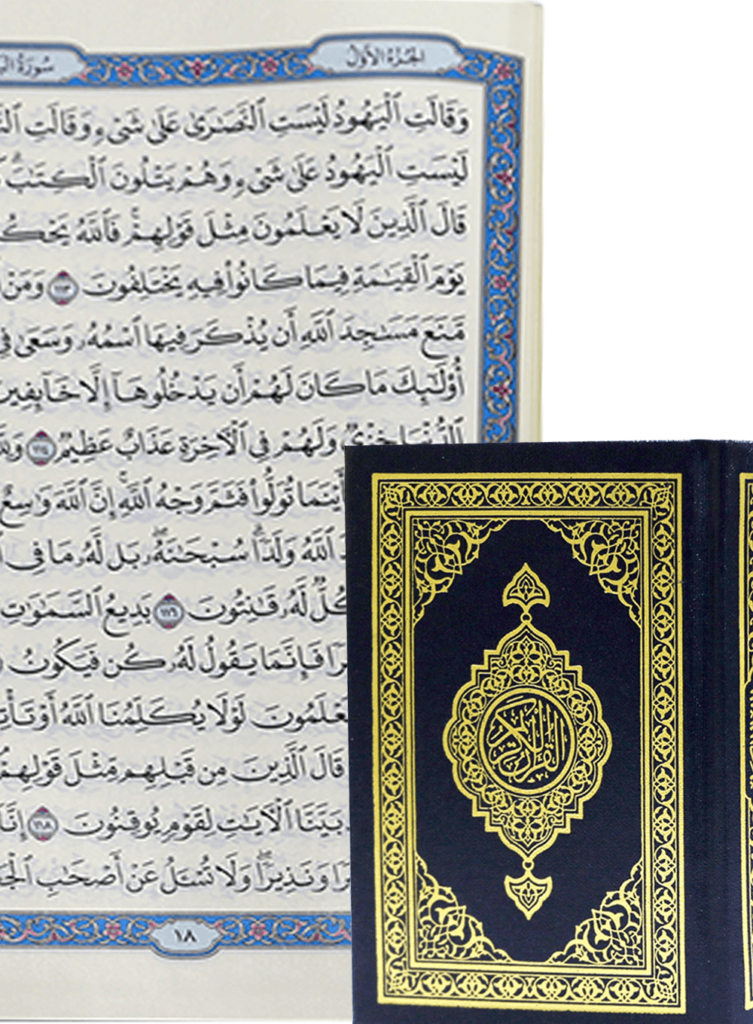 الجزء الأول
سورة
وَقَالَتِ ٱلْيَهُودُ لَيْسَتِ ٱلنَّصَٰرَىٰ عَلَىٰ شَىْءٍ وَقَالَتِ
لَيْسَتِ ٱلْيَهُودُ عَلَىٰ شَىْءٍ وَهُمْ يَتْلُونَ ٱلْكِتَٰبَۗ
قَالَ ٱلَّذِينَ لَا يَعْلَمُونَ مِثْلَ قَوْلِهِمْۚ فَٱللَّهُ
يَوْمَ ٱلْقِيَٰمَةِ فِيمَا كَانُوا۟ فِيهِ يَخْتَلِفُونَ ١١٣ وَمَنْ
مَّنَعَ مَسَٰجِدَ ٱللَّهِ أَن يُذْكَرَ فِيهَا ٱسْمُهُۥ وَسَعَىٰ فِى
أُو۟لَٰٓئِكَ مَا كَانَ لَهُمْ أَن يَدْخُلُوهَآ إِلَّا خَآئِفِينَ
ٱلدُّنْيَا خِزْىٌ وَلَهُمْ فِى ٱلْءَاخِرَةِ عَذَابٌ عَظِيمٌ ١١٤
تُوَلُّوا۟ فَثَمَّ وَجْهُ ٱللَّهِۚ إِنَّ ٱللَّهَ وَٰسِعٌ
ٱللَّهُ وَلَدًاۗ سُبْحَٰنَهُۥۖ بَل لَّهُۥ مَا فِى
كُلٌّ لَّهُۥ قَٰنِتُونَ ١١٦ بَدِيعُ ٱلسَّمَٰوَٰتِ
فَإِنَّمَا يَقُولُ لَهُۥ كُن فَيَكُونُ
لَوْلَا يُكَلِّمُنَا ٱللَّهُ أَوْ
قَالَ ٱلَّذِينَ مِن قَبْلِهِم مِّثْلَ قَوْلِهِمْ
بَيَّنَّا ٱلْءَايَٰتِ لِقَوْمٍ يُوقِنُونَ ١١٨ إِنَّا
وَنَذِيرًاۖ وَلَا تُسْـَٔلُ عَنْ أَصْحَٰبِ
١٨
القرآن الكريم